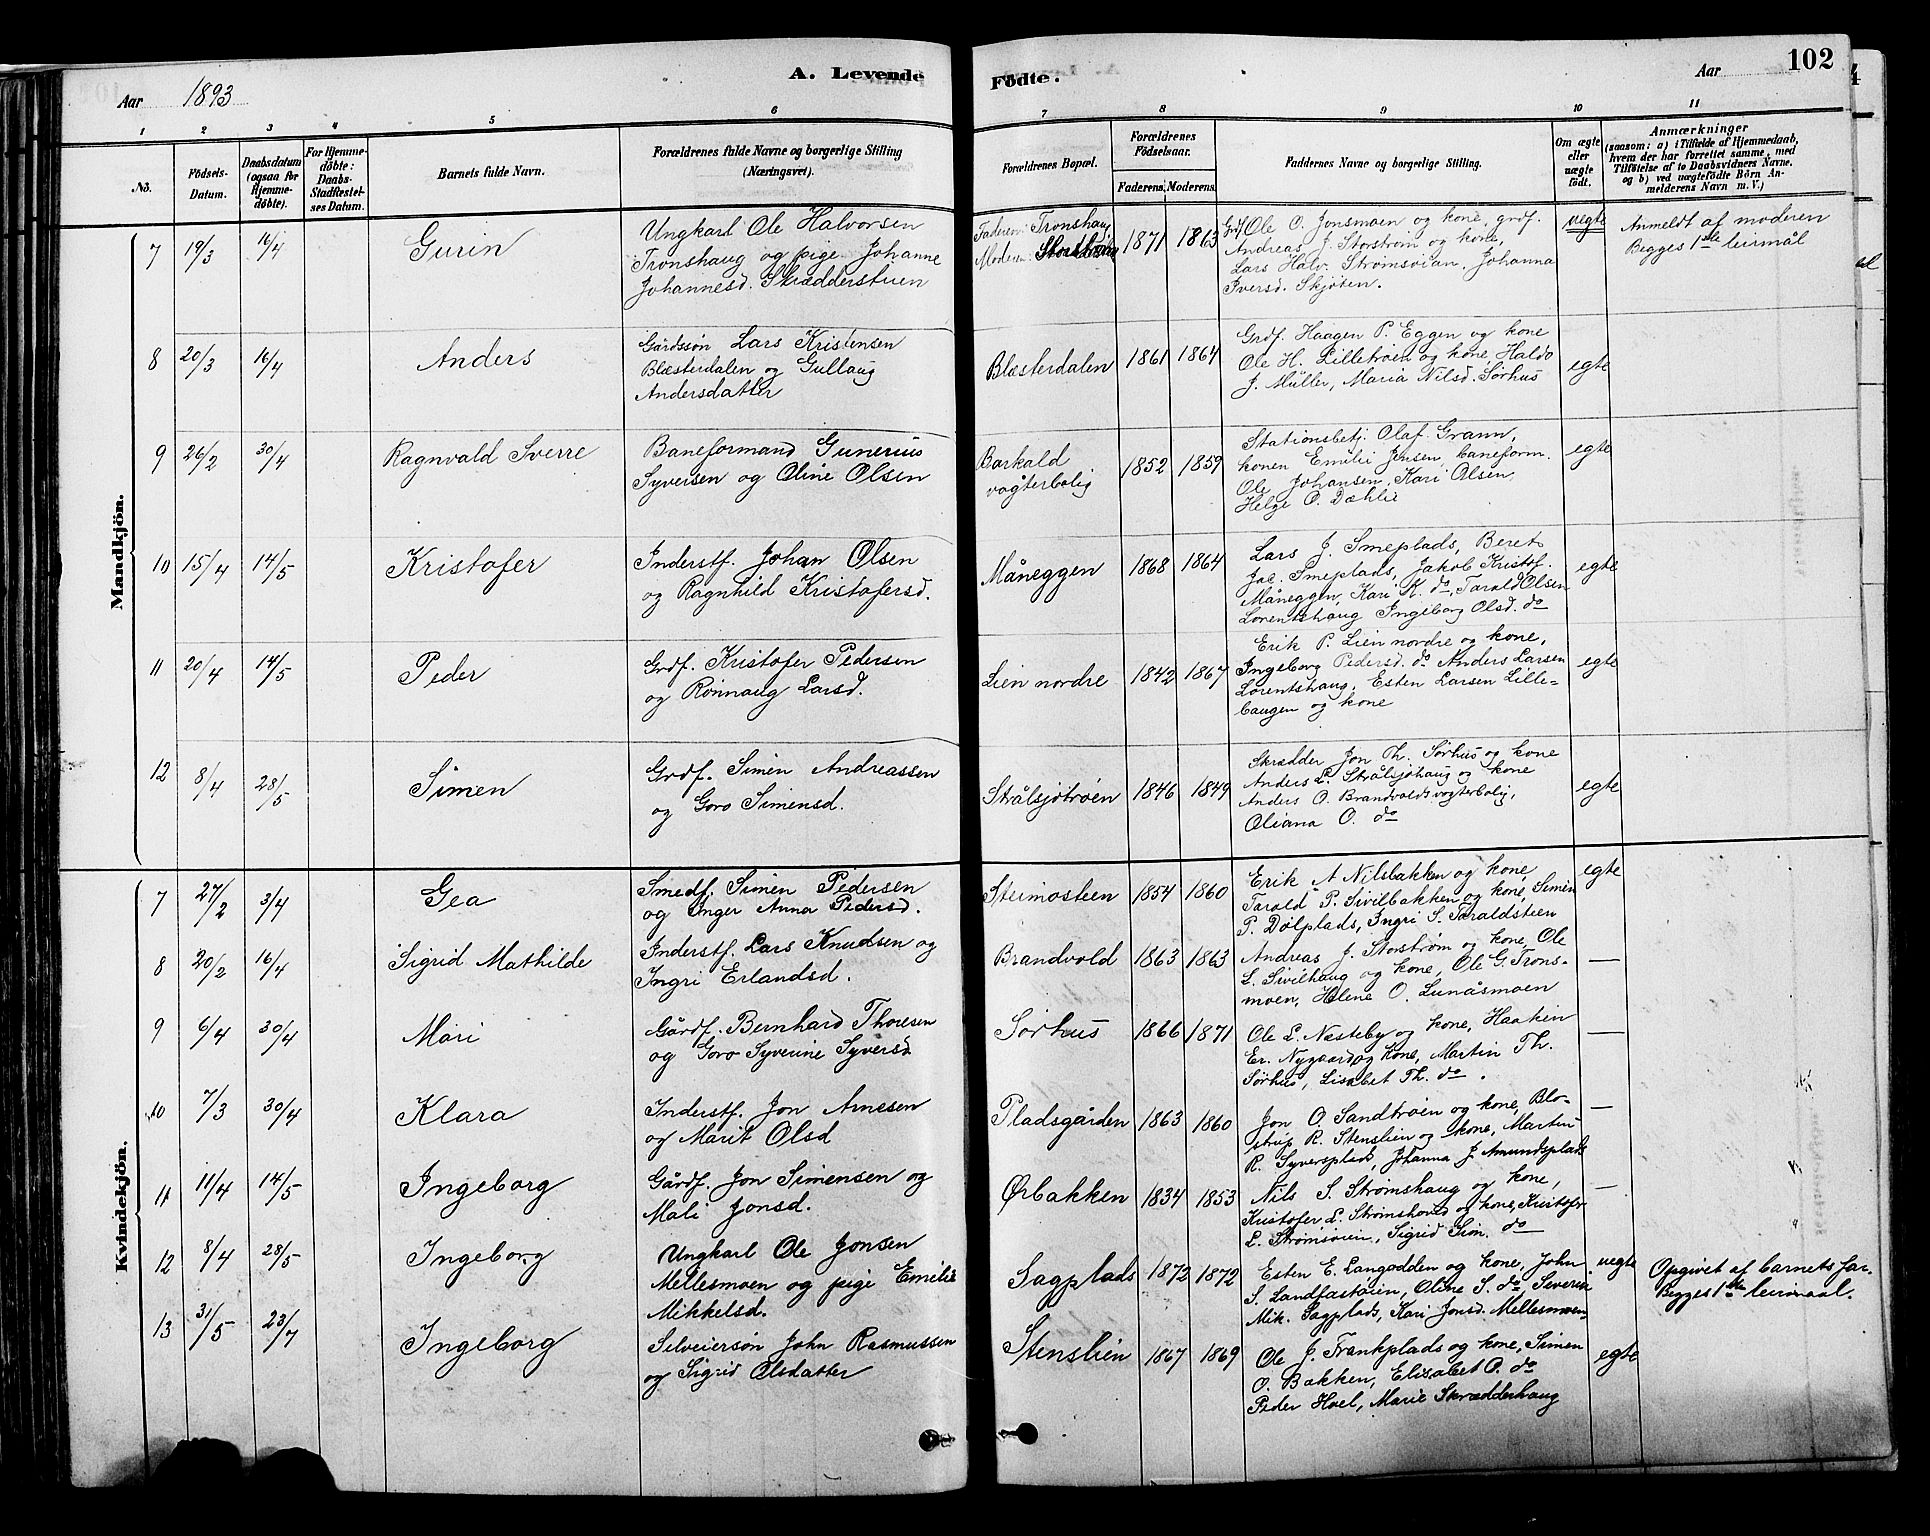 102
A. Levende
Födte.
Aar 1893
Aar
1
2
3
4
5
6
7
8
9
10
11
No.
Födsels-Datum.
Daabsdatum (ogsaa for Hjemme-döbte).
For Hjemme-döbte: Daabs-Stadfæstel-ses Datum.
Barnets fulde Navn.
Forældrenes fulde Navne og borgerlige Stilling
(Næringsvei).
Forældrenes Bopæl.
Forældrenes Födselsaar.
Faderens. Moderens.
Faddernes Navne og borgerlige Stilling.
Om ægte eller uægte födt.
Anmærkninger
(saasom: a) i Tilfælde af Hjemmedaab,
hvem der har forrettet samme, med
Tilföielse af to Daabsvidners Navne.
og b) ved uægtefödte Börn An-
melderens Navn m. V.)
Mandkjön.
7 19/3 16/4 Gurin
Ungkarl Ole Halvorsen
Tronshaug og pige Johanne
Johannesd. Skrædderstuen
Faderen: Tronshaug
Moderen:
1871 1863
Grdf Ole O. Jonsmoen og kone, grdf.
Andreas J. Storstrøm og kone,
Lars Halv. Strømsøian, Johanna
Iversd. Skjøten.
uegte
Anmeldt af moderen
Begges 1ste leirmål
8 20/3 16/4 Anders
Gårdssøn Lars Kristensen
Blæsterdalen og Gullaug
Andersdatter
Blæsterdalen 1861 1864
Grdf. Haagen P. Eggen og kone
Ole H. Lilletrøen og kone, Haldo
J. Müller, Maria Nilsd. Sørhus
egte
9 26/2 30/4 Ragnvald Sverre
Baneformand Gunerius
Syversen og Oline Olsen
Barkald
vogterbolig
1852 1859
Stationsbetj. Olaf Grann,
konen Emilie Jensen, baneform.
Ole Johansen, Kari Olsen,
Helge O. Dæhlie
egte
10 15/4 14/5 Kristofer
Inderstf. Johan Olsen
og Ragnhild Kristofersd.
Måneggen 1868 1864
Lars J. Smeplads, Beret
Jac. Smeplads, Jakob Kristof.
Måneggen, Kari K. do, Tarald Olsen
Lorentshaug Ingeborg Olsd. do
egte
11 20/4 14/5 Peder
Grdf. Kristofer Pedersen
og Rønnaug Larsd.
Lien nordre 1842 1867
Erik P. Lien nordre og kone,
Ingeborg Pedersd. do Anders Larsen
Lorentshaug, Esten Larsen Lille-
baugen og kone
egte
12 8/4 28/5 Simen
Grdf. Simen Andreassen
og Goro Simensd.
Strålsjøtrøen 1846 1849
Skrædder Jon Th. Sørhus og kone
Anders L. Strålsjøhaug og kone
Anders O. Brandvolds vogterbolig,
Oliana O. do
egte
Kvindekjön.
7 27/2 3/4 Gea
Smedf. Simen Pedersen
og Inger Anna Pedersd.
Steimosteen 1854 1860
Erik A Nilsbakken og kone,
Tarald P. Sivilbakken og kone, Simen
P. Dølplads, Ingri S. Taraldsteen
egte
8 20/2 16/4 Sigrid Mathilde
Inderstf. Lars Knudsen og
Ingri Erlandsd.
Brandvold 1863 1863
Andreas J. Storstrøm og kone, Ole
L. Sivilhaug og kone, Ole G. Trons-
moen, Helene O. Lunåsmoen
—
9 6/4 30/4 Mari
Gårdf. Bernhard Thoresen
og Goro Syverine Syversd
Sørhus 1866 1871
Ole L. Næsteby og kone, Haaken
Er. Nygaard og Kone, Martin Th.
Sørhus, Lisabet Th. do.
—
10 7/3 30/4 Klara
Inderstf. Jon Arnesen
og Marit Olsd
Pladsgården 1863 1860
Jon O. Sandtrøen og kone, Blo-
strup R. Stenslien og kone, Martin
R. Syversplads, Johanna J. Amundsplads
—
11 11/4 14/5 Ingeborg
Gårdf. Jon Simensen og
Mali Jonsd.
Ørbakken 1834 1853
Nils S. Strømshaug og kone,
Kristofer L. Strømshoved og kone, Kristofer
L. Strømsøien, Sigrid Sim. do
—
12 8/4 28/5 Ingeborg
Ungkarl Ole Jonsen
Mellesmoen og pige Emilie
Mikkelsd.
Sagplads 1872 1872
Esten E. Langodden og kone, John
S. Landfastøien, Oline S. do, Severin
Mik. Sagplads, Kari Jonsd. Mellesmoen
uegte
Opgivet af barnets far.
Begges 1ste leirmaal.
13 31/5 23/7 Ingeborg
Selveiersøn John Rasmussen
og Sigrid Olsdatter
Stenslien 1867 1869
Ole J. Trankplads og kone, Simen
O. Bakken, Elisabet P. do
Peder Hoel, Marie Skrædderhaug
egte